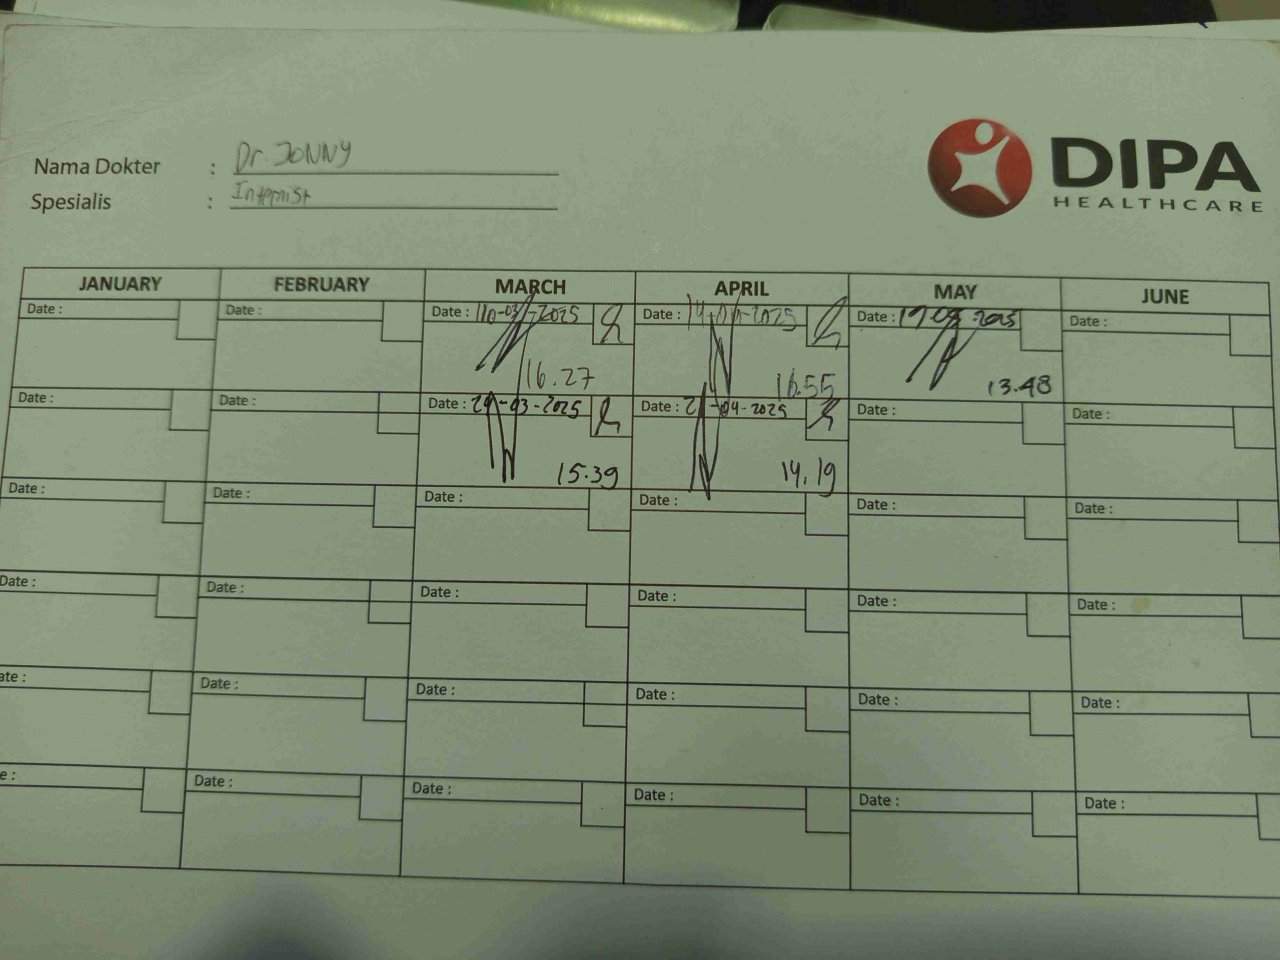 Nama Dokter : Dr JONNY
Spesialis : Internist
DIPA
HEALTHCARE
JANUARY FEBRUARY MARCH APRIL MAY JUNE
Date : Date : Date : 10-03-2025 Date : 14-04-2025 Date : Date :
16.27 16.55 13.48
Date : Date : Date : 24-03-2025 Date : 21-04-2025 Date : Date :
15.39 14.19
Date : Date : Date : Date : Date : Date :
Date : Date : Date : Date : Date : Date :
ate : Date : Date : Date : Date : Date :
e : Date : Date : Date : Date : Date :